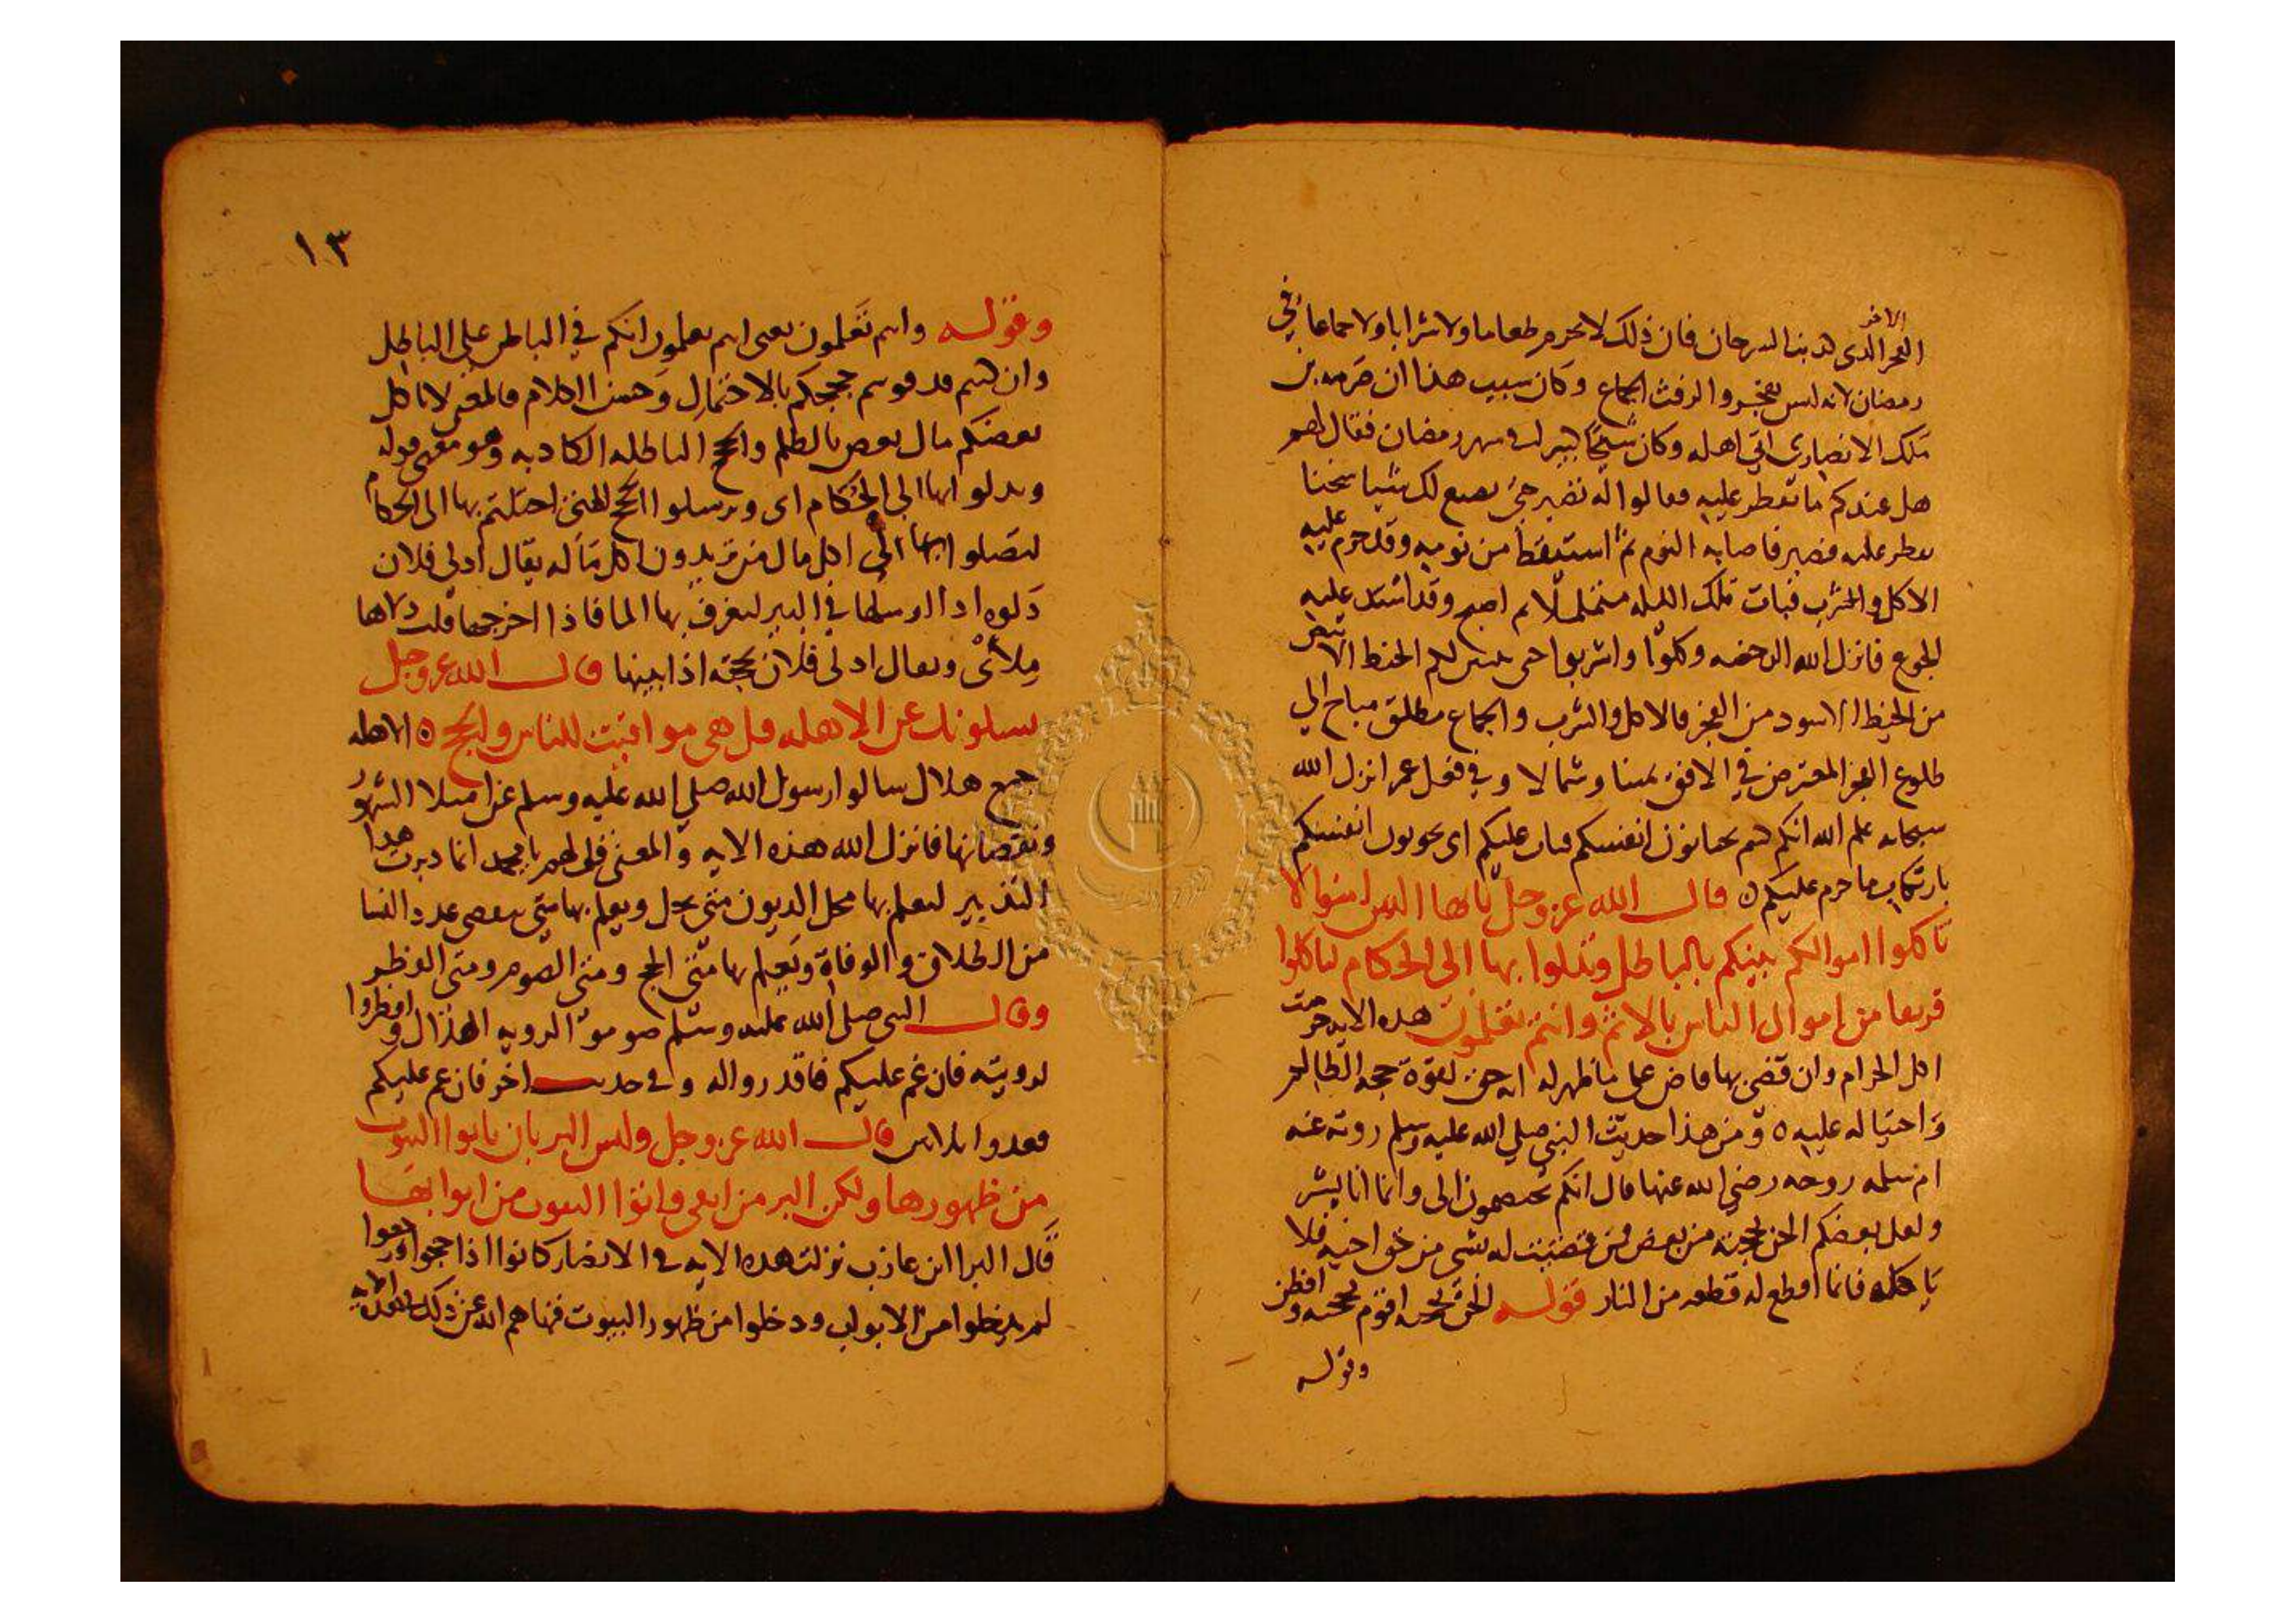 الاخر
الفجر الذى هو ذنب السرحان فان ذلك لا يحرم طعاما ولا شرابا ولا جماعا في
رمضان لانه ليس بفجر والرفث الجماع وكان سبب هذا ان صرمه بن
ملك الانصاري اتي اهله وكان شيخا كبيرا في شهر رمضان فقال لهم
هل عندكم ما نفطر عليه فقالوا له تصبر حتي نصنع لك شيا سخنا
تفطر عليه فصبر فاصابه النوم ثم استيقظ من نومه وقد حرم عليه
الاكل والشرب فبات تلك الليله متململا ثم اصبح وقد اشتد عليه
الجوع فانزل الله الرخصه وكلوا واشربوا حتى يتبين لكم الخيط الابيض
من الخيط الاسود من الفجر فالاكل والشرب والجماع مطلق مباح الي
طلوع الفجر المعترض في الافق يمينا وشمالا وفي فعل عمر انزل الله
سبحانه علم الله انكم كنتم تختانون انفسكم فتاب عليكم اى تخونون انفسكم
بارتكاب ما حرم عليكم ٥ قال الله عز وجل يا ايها الذين امنوا لا
تاكلوا اموالكم بينكم بالباطل وتدلوا بها الى الحكام لتاكلوا
فريقا من اموال الناس بالاثم وانتم تعلمون هذه الايه حرمت
اكل الحرام وان قضى بها قاض على ما ظهر له انه حق لقوة حجه الظالم
واحتياله عليه ٥ ومن هذا حديث النبي صلي الله عليه وسلم روته عنه
ام سلمه زوجه رضي الله عنها قال انكم تختصمون الى وانما انا بشر
ولعل بعضكم الحن بحجته من بعض فمن قضيت له بشى من حق اخيه فلا
ياخذه فانما اقطع له قطعه من النار قوله الحن بحجته اقوم بحجته وافطن
وقوله
١٣
وقوله وانتم تعلمون يعنى انتم تعلمون انكم في الباطن على الباطل
وان كنتم قد قومتم حججكم بالاحتمال وحسن الكلام فالمعنى لا ياكل
بعضكم مال بعض بالظلم والحجج الباطله الكاذبه وهو معنى قوله
وتدلوا بها الى الحكام اى وترسلوا الحجج التي احتلتم بها الى الحكام
لتصلوا بها الى اكل مال من تريدون اكل ماله يقال ادلى فلان
دلوه اذا ارسلها في البير ليغرف بها الما فاذا اخرجها قلت دلاها
ملأى ويقال ادلى فلان بحجته اذا بينها قال الله عز وجل
يسلونك عن الاهله قل هى مواقيت للناس والحج ٥ الاهله
جمع هلال سالوا رسول الله صلي الله عليه وسلم عن امتلا الشهور
ونقصانها فانزل الله هذه الايه والمعنى قل لهم يا محمد انما دبرت هذا
التدبير ليعلم بها محل الديون متى يحل ويعلم بها متى ينقضى عدد النسا
من الطلاق والوفاة ويعلم بها متى الحج ومتى الصوم ومتى الفطر
وقال النبى صلى الله عليه وسلم صوموا لرويه الهلال وافطروا
لرويته فان غم عليكم فاقدروا له وفى حديث اخر فان غم عليكم
فعدوا ثلاثين قال الله عز وجل وليس البر بان ياتوا البيوت
من ظهورها ولكن البر من اتقى واتوا البيوت من ابوابها
قال البرا ابن عازب نزلت هذه الايه فى الانصار كانوا اذا حجوا ورجعوا
لم يدخلوا من الابواب ودخلوا من ظهور البيوت فنهاهم الله عن ذلك